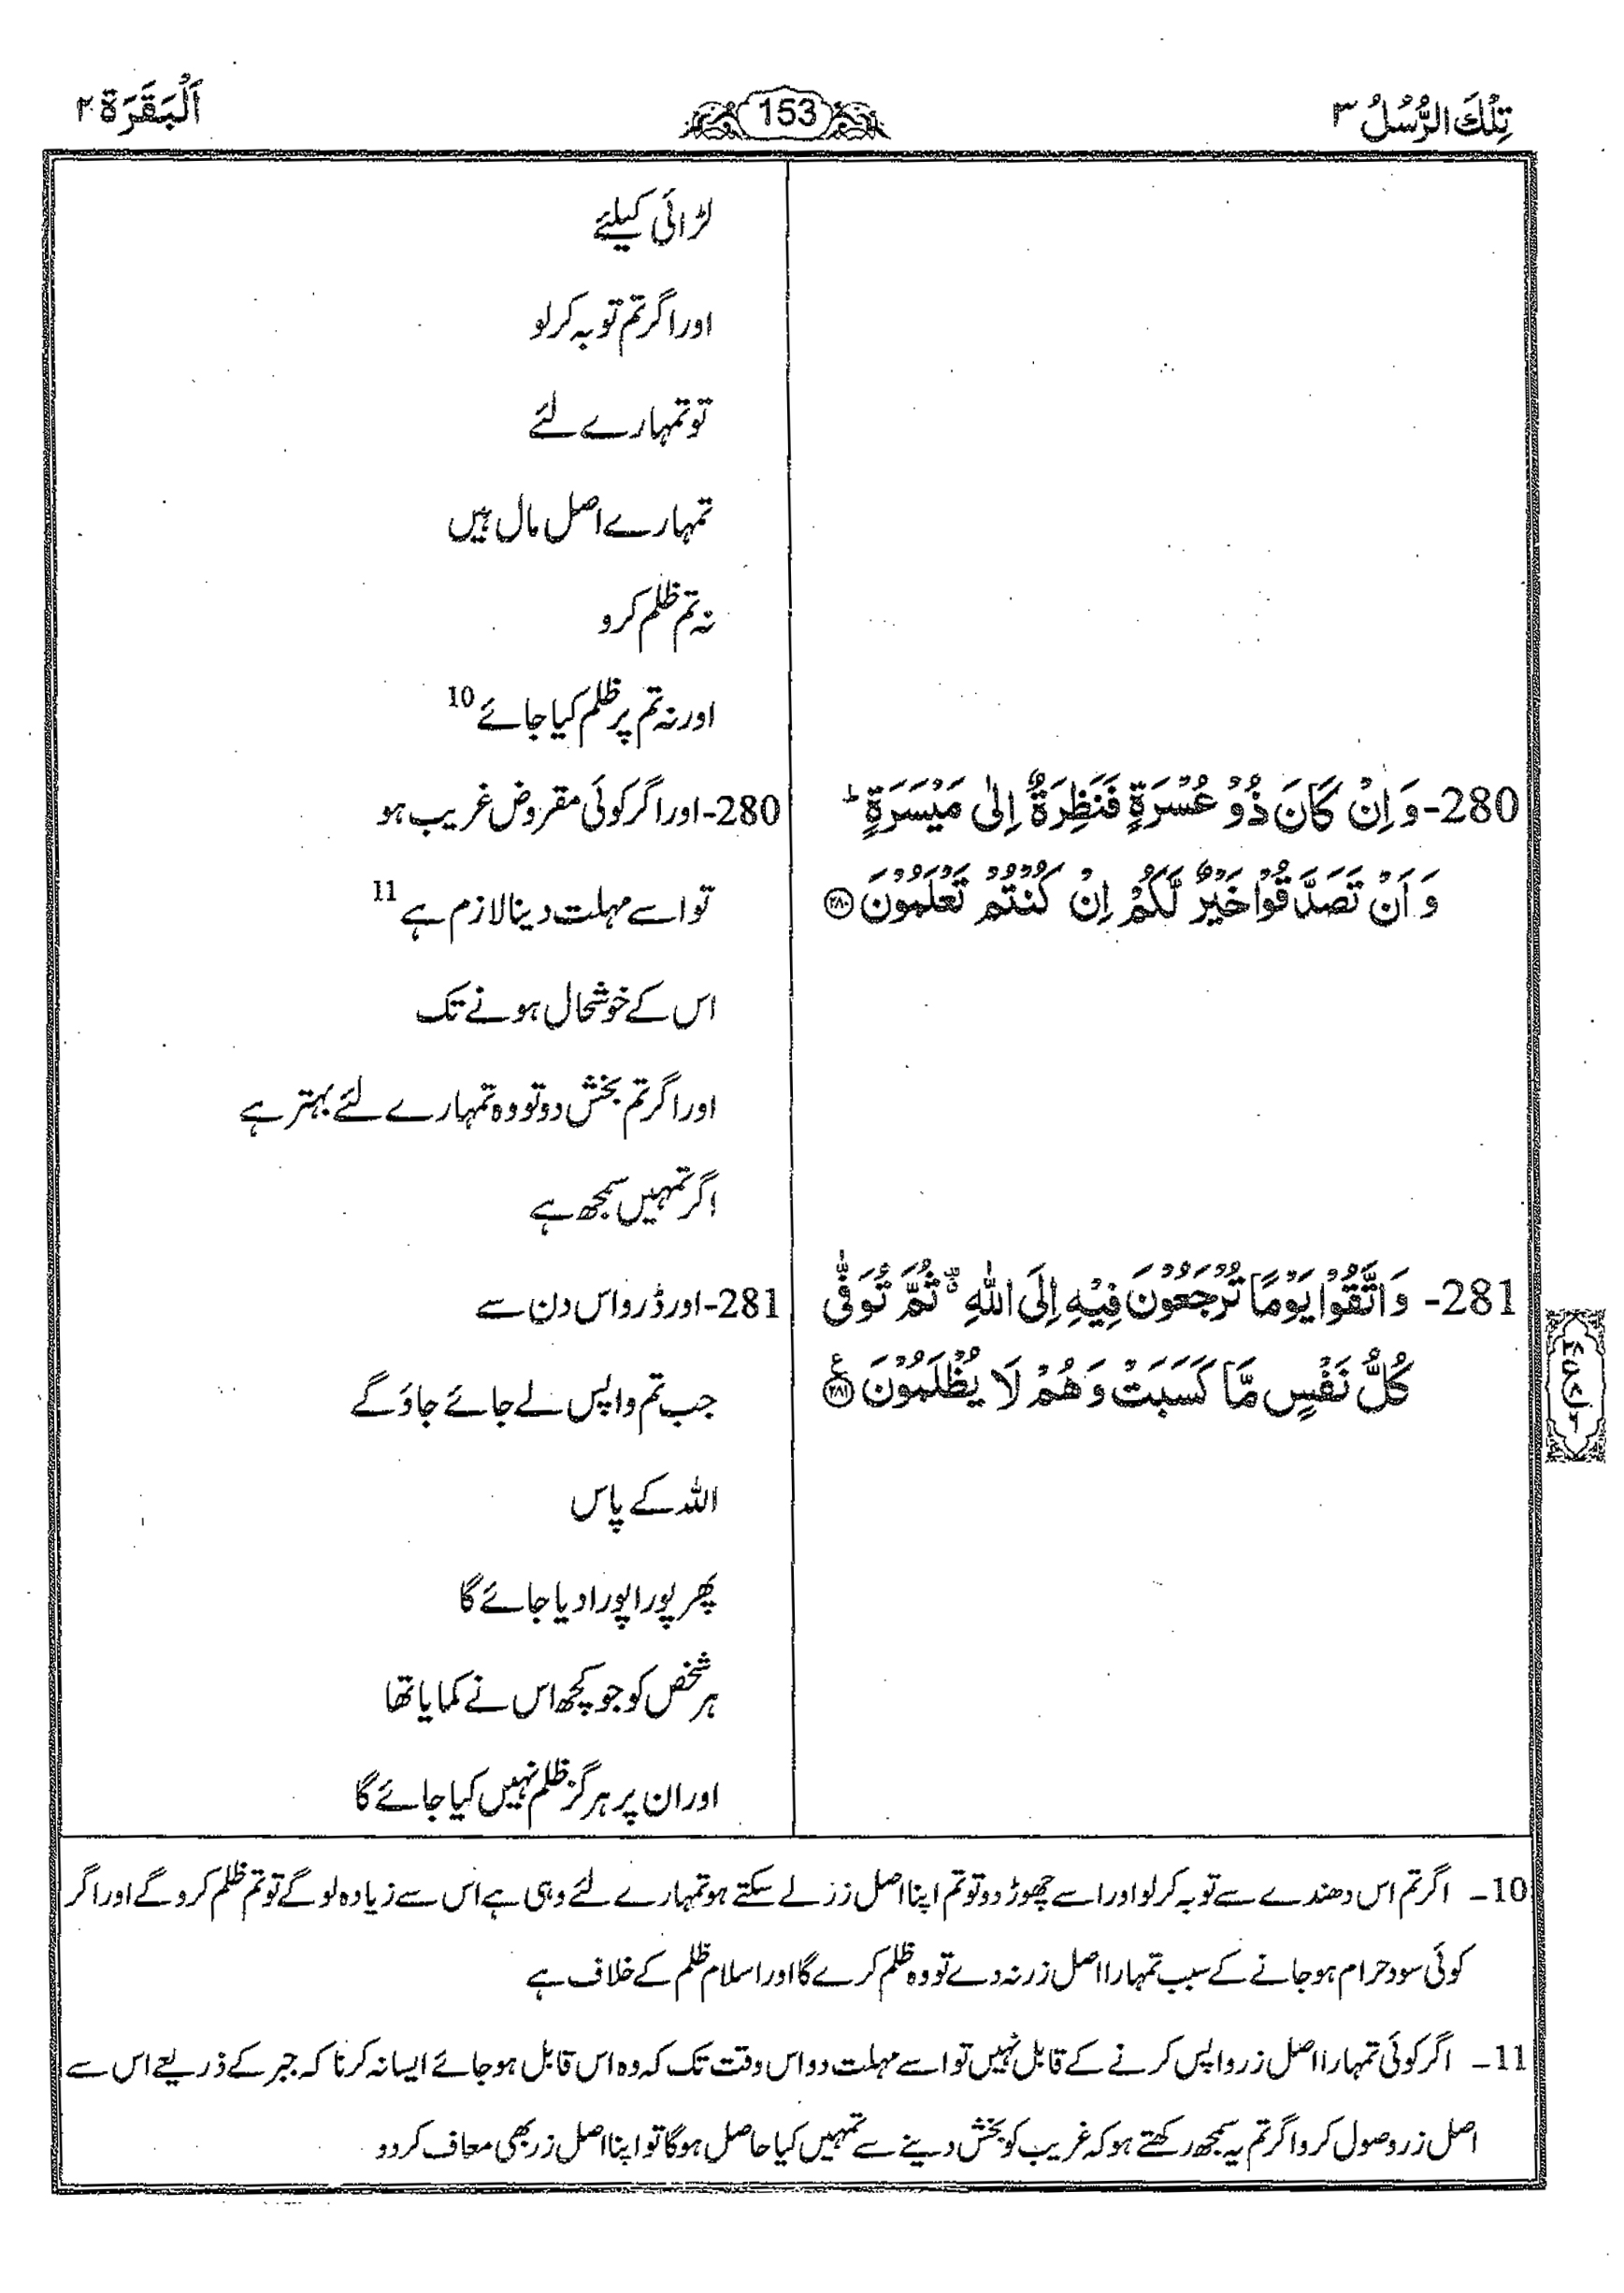 تِلْكَ الرُّسُلُ ۳
153
اَلْبَقَرَة ۲
لڑائی کیلئے
اور اگر تم توبہ کر لو
تو تمہارے لئے
تمہارے اصل مال ہیں
نہ تم ظلم کرو
اور نہ تم پر ظلم کیا جائے 10
280- وَ اِنْ كَانَ ذُوْ عُسْرَةٍ فَنَظِرَةٌ اِلٰى مَيْسَرَةٍ ؕ
وَ اَنْ تَصَدَّقُوْا خَيْرٌ لَّكُمْ اِنْ كُنْتُمْ تَعْلَمُوْنَ ۲۸۰
280- اور اگر کوئی مقروض غریب ہو
تو اسے مہلت دینا لازم ہے 11
اس کے خوشحال ہونے تک
اور اگر تم بخش دو تو وہ تمہارے لئے بہتر ہے
اگر تمہیں سمجھ ہے
281- وَ اتَّقُوْا يَوْمًا تُرْجَعُوْنَ فِيْهِ اِلَى اللّٰهِ ۫ ثُمَّ تُوَفّٰى
كُلُّ نَفْسٍ مَّا كَسَبَتْ وَ هُمْ لَا يُظْلَمُوْنَ ۲۸۱
ع
281- اور ڈرو اس دن سے
جب تم واپس لے جائے جاؤ گے
اللہ کے پاس
پھر پورا پورا دیا جائے گا
ہر شخص کو جو کچھ اس نے کمایا تھا
اور ان پر ہرگز ظلم نہیں کیا جائے گا
10۔ اگر تم اس دھندے سے توبہ کر لو اور اسے چھوڑ دو تو تم اپنا اصل زر لے سکتے ہو تمہارے لئے وہی ہے اس سے زیادہ لو گے تو تم ظلم کرو گے اور اگر
کوئی سود حرام ہو جانے کے سبب تمہارا اصل زر نہ دے تو وہ ظلم کرے گا اور اسلام ظلم کے خلاف ہے
11۔ اگر کوئی تمہارا اصل زر واپس کرنے کے قابل نہیں تو اسے مہلت دو اس وقت تک کہ وہ اس قابل ہو جائے ایسا نہ کرنا کہ جبر کے ذریعے اس سے
اصل زر وصول کرو اگر تم یہ سمجھ رکھتے ہو کہ غریب کو بخش دینے سے تمہیں کیا حاصل ہو گا تو اپنا اصل زر بھی معاف کر دو